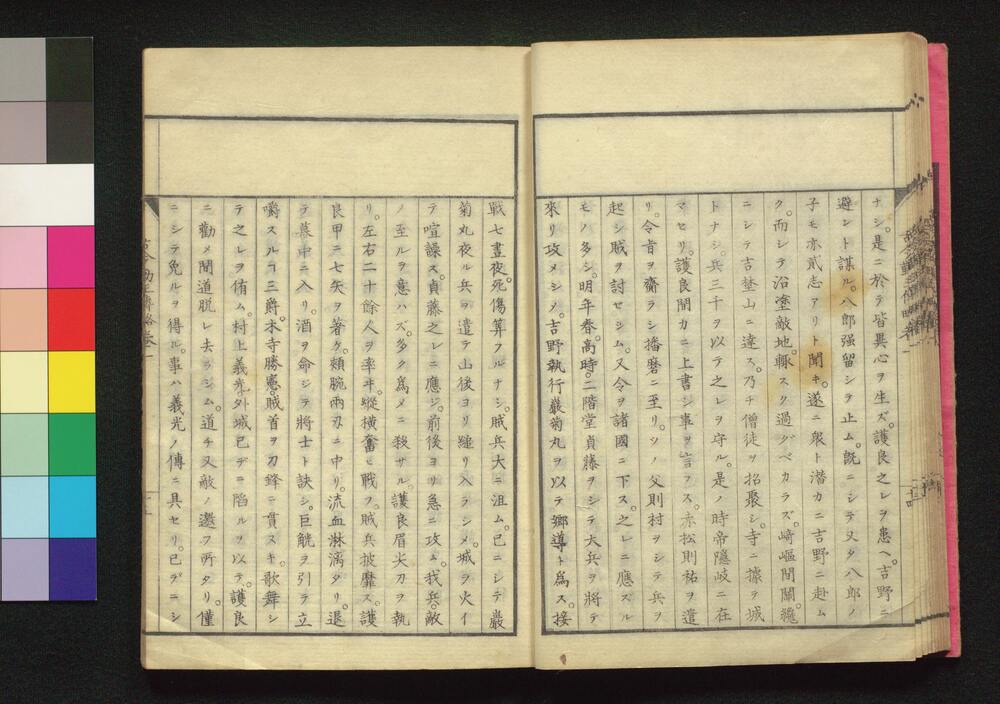 ナシ。是ニ於テ皆異心ヲ生ズ。護良之レヲ患ヘ。吉野ニ
避ント謀ル。八郎强留シテ止ム。既ニシテ又タ八郎ノ
子モ亦貳志アリト聞キ。遂ニ衆ト潜カニ吉野ニ赴ム
ク。而シテ沿塗敵地。輙スク過グベカラズ。崎嶇間關。纔
ニシテ吉埜山ニ達ス。乃チ僧徒ヲ招聚シ。寺ニ據テ城
トナシ。兵三千ヲ以テ之レヲ守ル。是ノ時帝隱岐ニ在
マセリ。護良間カニ上書シ事ヲ言フス。赤松則祐ヲ遣
リ。令旨ヲ齎ラシ播磨ニ至リ。ソノ父則村ヲシテ兵ヲ
起シ賊ヲ討セシム。又令ヲ諸國ニ下ス。之レニ應ズル
モノ多シ。明年春。高時。二階堂貞藤ヲシテ大兵ヲ將テ
來リ攻メシム。吉野執行巖菊丸ヲ以テ鄕導ト爲ス。接
戰七晝夜。死傷算フルナシ。賊兵大ニ沮ム。已ニシテ巖
菊丸夜ル兵ヲ遣テ山後ヨリ縋リ入ラシメ。城ヲ火イ
テ喧譟ス。貞藤之レニ應ジ。前後ヨリ急ニ攻ム。我兵。敵
ノ至ルヲ意ハズ。多ク爲メニ殺サル。護良眉尖刀ヲ執
リ。左右二十餘人ヲ率ヰ。縱橫奮ヒ戰フ。賊兵披靡ス。護
良甲ニ七矢ヲ著ケ。頰腕兩刃ニ中リ。流血淋漓タリ。退
テ幕中ニ入リ。酒ヲ命ジテ將士ト訣シ。巨觥ヲ引テ立
嚼スルコ三爵。木寺勝憲。賊首ヲ刀鋒ニ貫スキ。歌舞シ
テ之レヲ侑ム。村上義光。外城已デニ陷ルヲ以テ。護良
ニ勸メ間道脫レ去ラシム。道チ又敵ノ遮フ所タリ。僅
ニシテ免ルヲ得ル。事ハ義光ノ傳ニ具セリ。已デニシ